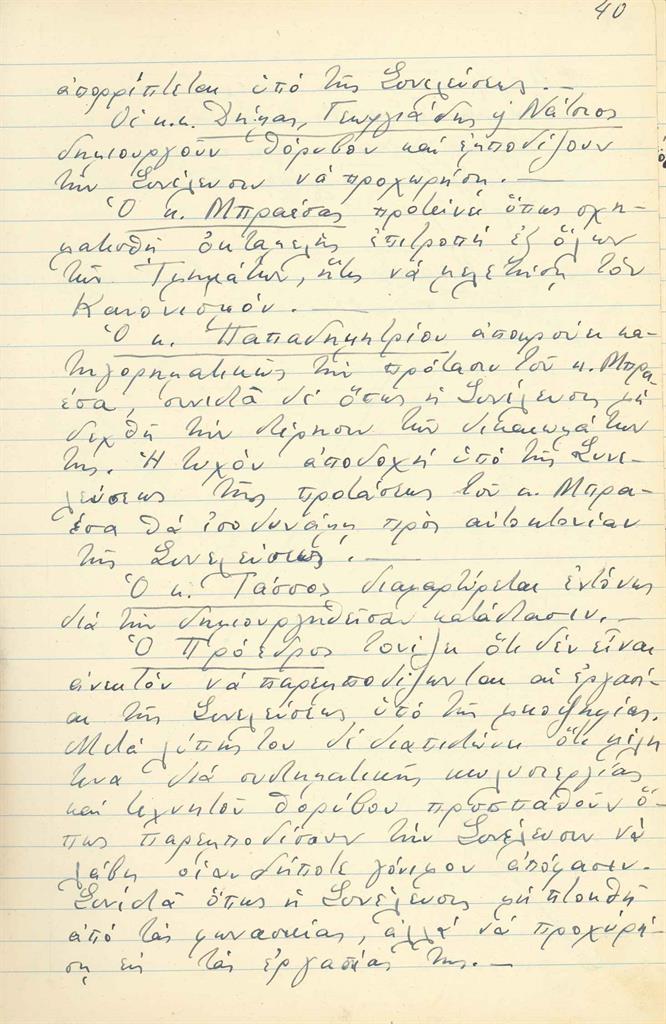 40
ἀπορρίπτεται ὑπό τῆς Συνελεύσεως. —
Οἱ κ.κ. Δήμας, Γεωργιάδης ἤ Νάτσιος
δημιουργοῦν θόρυβον καί ἐμποδίζουν
τήν Συνέλευσιν νά προχωρήση. —
Ὁ κ. Μπραέσας προτείνει ὅπως σχη-
ματισθῆ ὀκταμελής ἐπιτροπή ἐξ ὅλων
τῶν Τμημάτων, ἥτις νά μελετήση τόν
Κανονισμόν. —
Ὁ κ. Παπαδημητρίου ἀποκρούει κα-
τηγορηματικῶς τήν πρότασιν τοῦ κ. Μπρα-
έσα, συνιστᾶ δέ ὅπως ἡ Συνέλευσις μή
δεχθῆ τήν στέρησιν τῶν δικαιωμάτων
της. Ἡ τυχόν ἀποδοχή ὑπό τῆς Συνε-
λεύσεως τῆς προτάσεως τοῦ κ. Μπρα-
έσα θά ἰσοδυνάμη πρός αὐτοκτονίαν
τῆς Συνελεύσεως. —
Ὁ κ. Τάσσος διαμαρτύρεται ἐντόνως
διά τήν δημιουργηθεῖσαν κατάστασιν. —
Ὁ Πρόεδρος τονίζει ὅτι δέν εἶναι
ἀνεκτόν νά παρεμποδίζωνται αἱ ἐργασί-
αι τῆς Συνελεύσεως ὑπό τῆς μειοψηφίας.
Μετά λύπης του δέ διαπιστώνει ὅτι μέλη
τινα διά συστηματικῆς κωλυσιεργίας
καί τεχνητοῦ θορύβου προσπαθοῦν ὅ-
πως παρεμποδίσουν τήν Συνέλευσιν νά
λάβη οἱανδήποτε γόνιμον ἀπόφασιν.
Συνιστᾶ ὅπως ἡ Συνέλευσις μή πτοηθῆ
ἀπό τάς φωνασκίας, ἀλλά νά προχωρή-
ση εἰς τάς ἐργασίας της. —